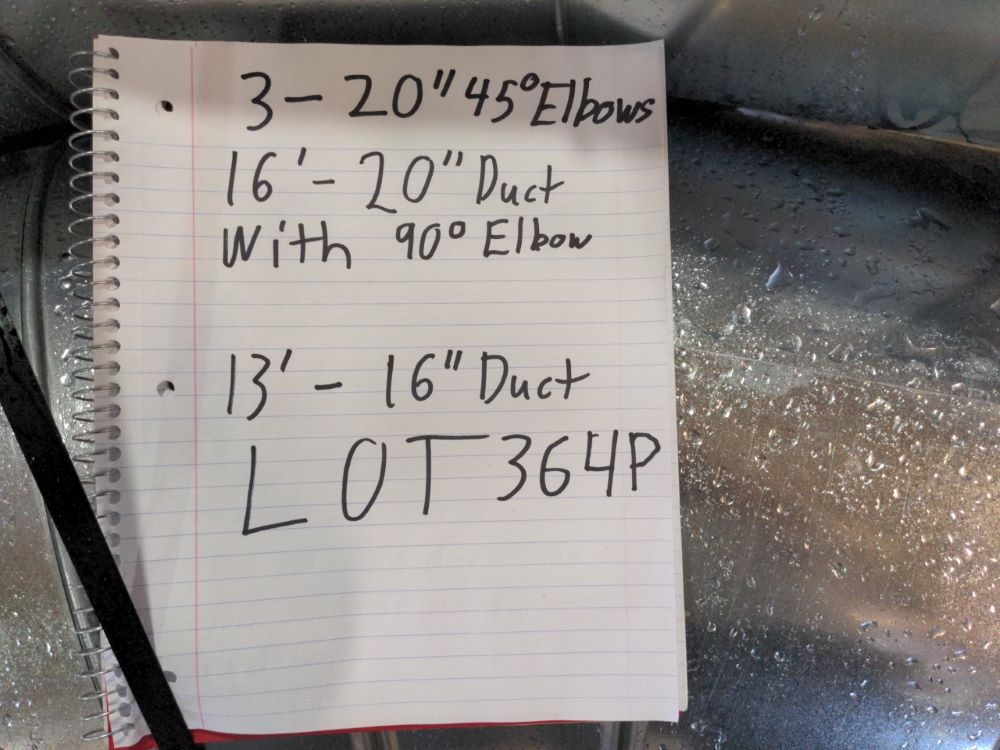 3 - 20" 45° Elbows
16' - 20" Duct
With 90° Elbow
13' - 16" Duct
LOT 364P